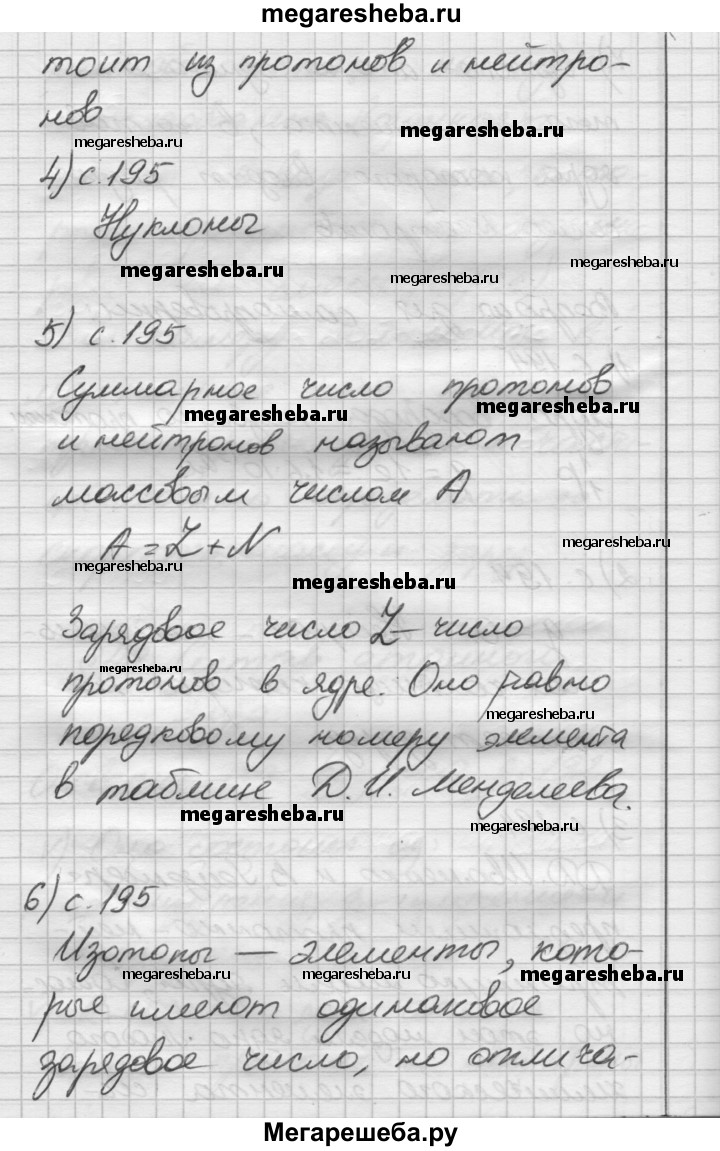 megaresheba.ru
тоит из протонов и нейтро-
нов
megaresheba.ru
megaresheba.ru
4) с.195
Нуклоны
megaresheba.ru
megaresheba.ru
megaresheba.ru
5) с.195
Суммарное число протонов
megaresheba.ru
megaresheba.ru
и нейтронов называют
массовым числом А
A=Z+N
megaresheba.ru
megaresheba.ru
Зарядовое число Z – число
megaresheba.ru
протонов в ядре. Оно равно
megaresheba.ru
порядковому номеру элемента
в таблице Д.И. Менделеева.
megaresheba.ru
megaresheba.ru
6) с.195
Изотопы — элементы, кото-
megaresheba.ru
megaresheba.ru
megaresheba.ru
рые имеют одинаковое
зарядовое число, но отлича-
Мегарешеба.ру